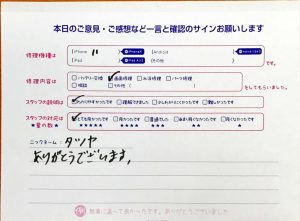 本日のご意見・ご感想など一言と確認のサインお願いします
修理機種は
iPhone 11
iPad
Android
その他
です。
修理内容は
バッテリー交換 ✓画面修理 水没修理 パーツ修理
相談 その他（ ）
をしてもらいました。
スタッフの説明は
✓わかりやすかったです 理解できました 少しわかりにくかったです 難しかったです
スタッフの対応は
★星の数★
✓とても良かったです 良かったです 普通でした
★★★★★ ★★★★ ★★★ ★★ ★
ニックネーム：タツヤ
ありがとうございます。